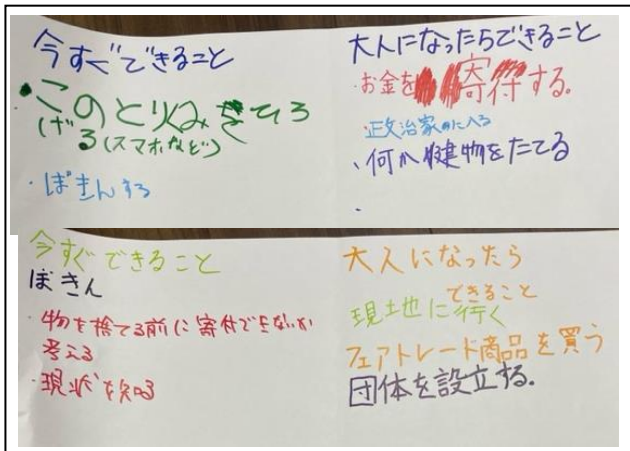 今すぐできること
・このとりくみをひろ
げる(スマホなど)
・ぼきんする
大人になったらできること
・お金を寄付する。
政治家に入る
・何か建物をたてる
今すぐできること
ぼきん
・物を捨てる前に寄付できないか
考える
・現状を知る
大人になったら
できること
現土地に行く
フェアトレード商品を買う
団体を設立する。